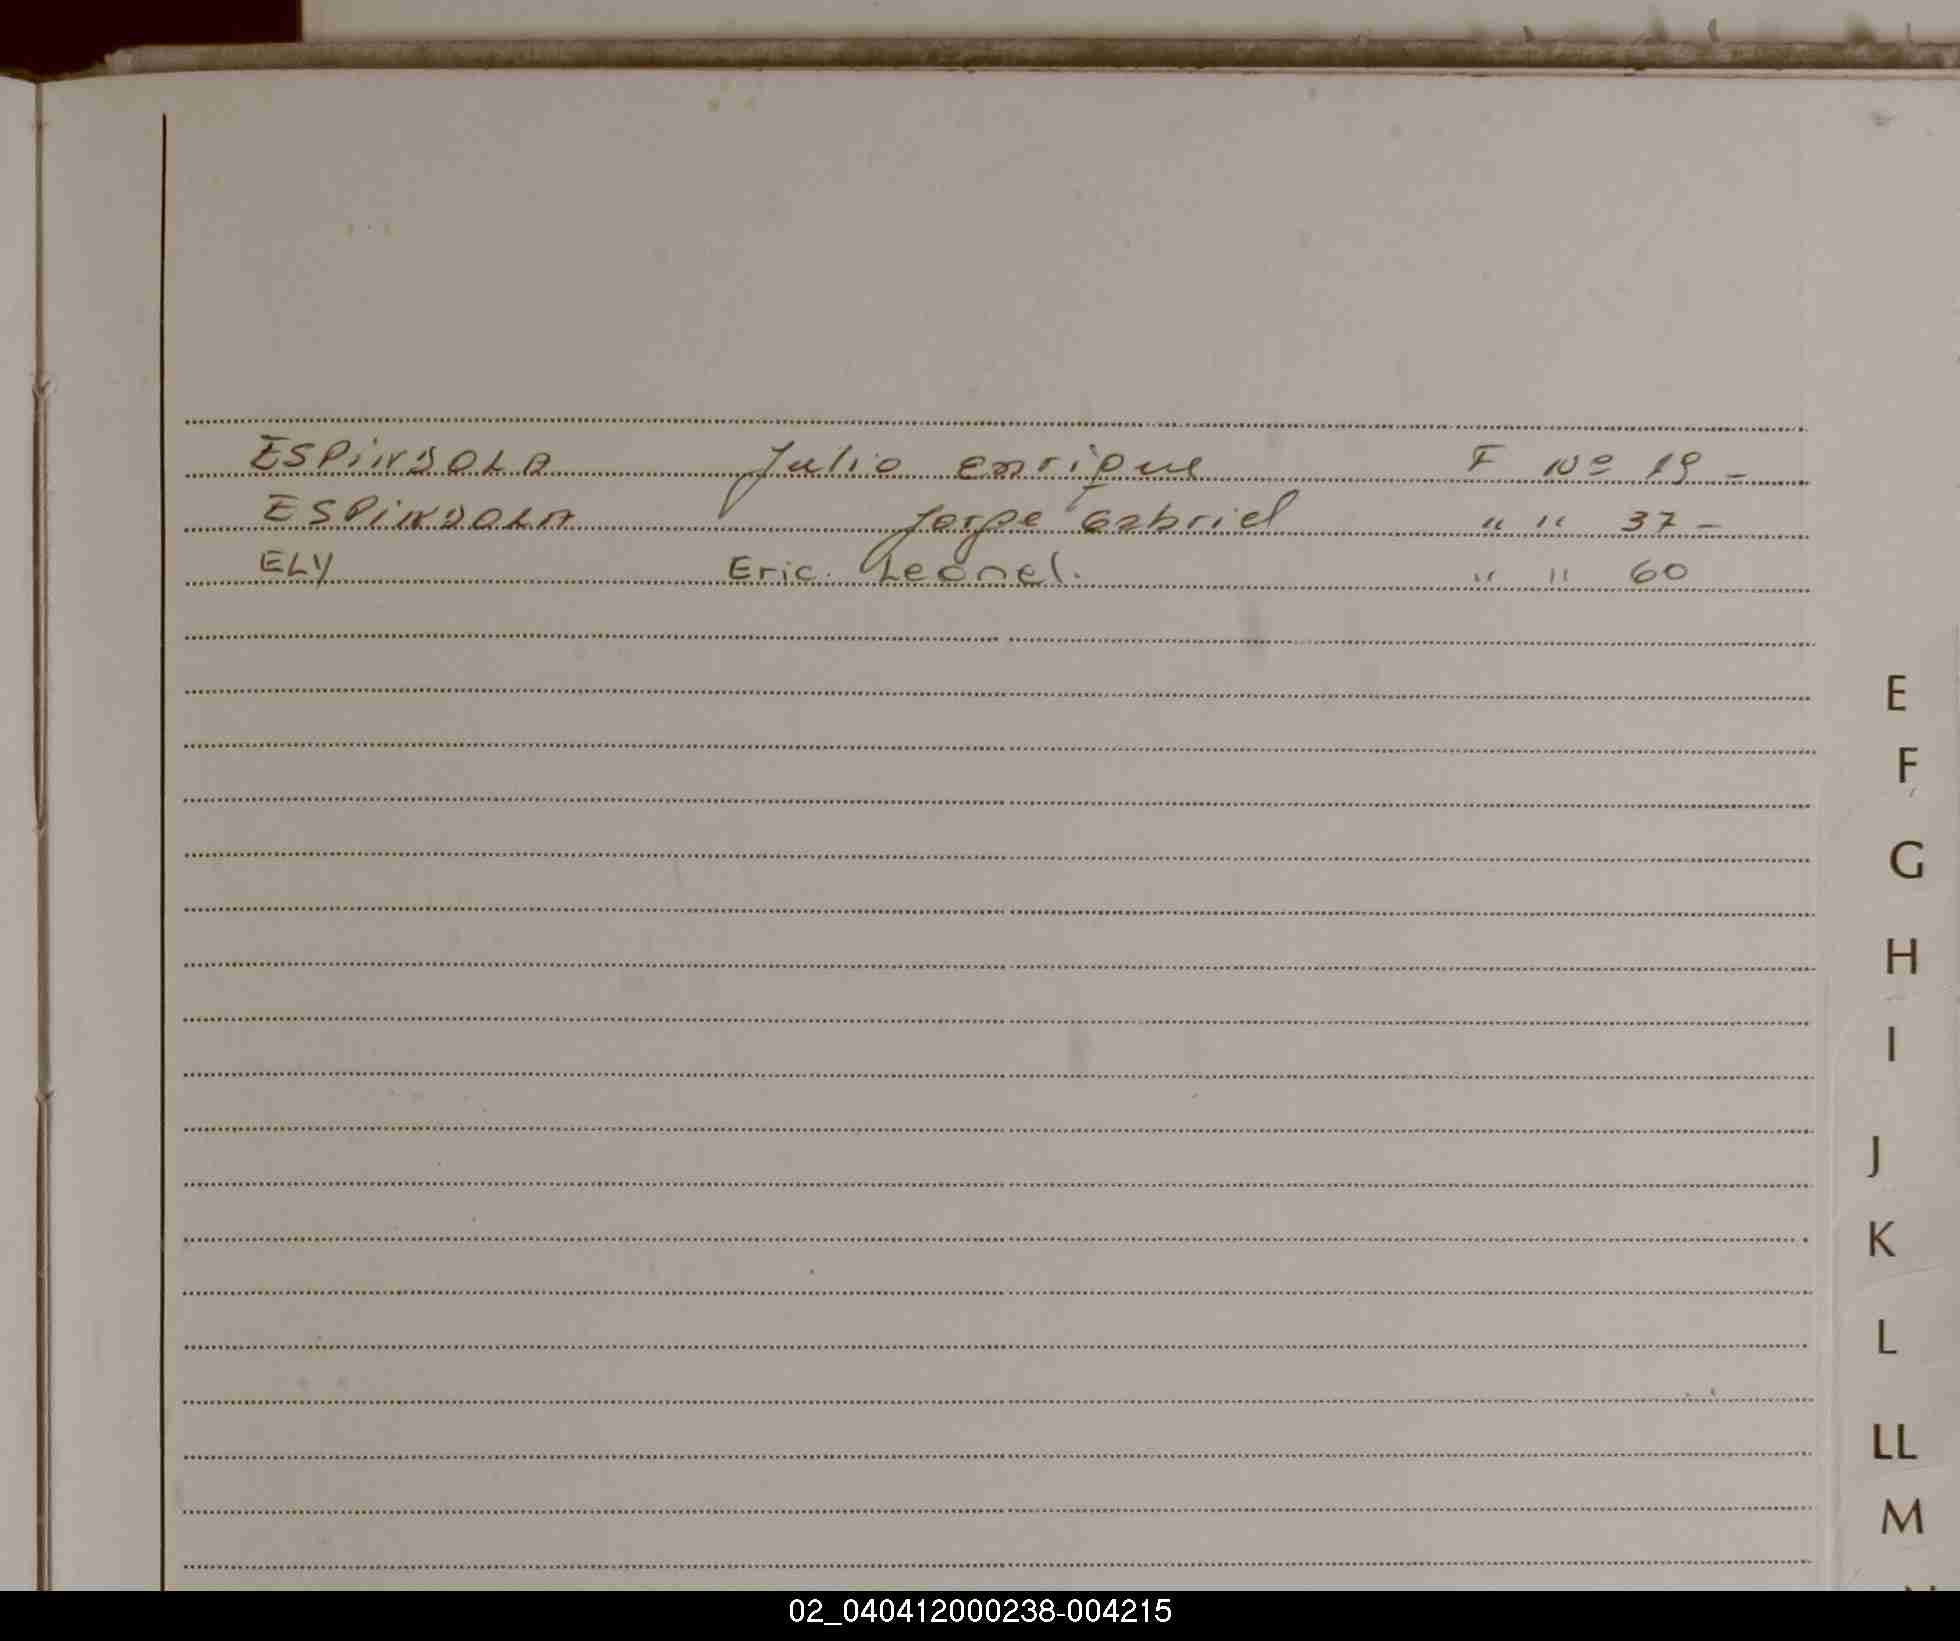 ESPINDOLA Julio Enrique F Nº 19 -
ESPINDOLA Jorge Gabriel " " 37 -
ELY Eric. Leonel. " " 60
E
F
G
H
I
J
K
L
LL
M
02_040412000238-004215